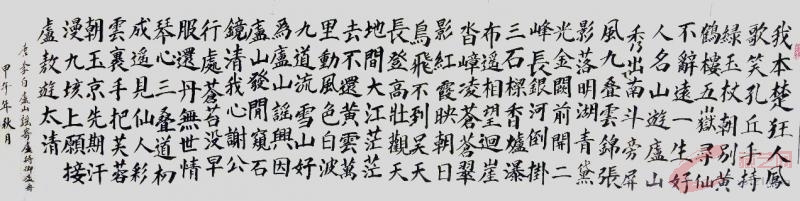 我本楚狂人鳳
歌笑孔丘手持
緑玉杖朝別黄
鶴樓五嶽尋仙
不辭遠一生好
人名山遊廬山
秀出南斗旁屏
風九疊雲錦張
影落明湖青黛
光金闕前開二
峰長銀河倒掛
三石樑香爐瀑
布遥相望迴崖
沓嶂凌蒼蒼翠
影紅霞映朝日
鳥飛不到吴天
長登高壯觀天
地間大江茫茫
去不還黄雲萬
里動風色白波
九道流雪山好
為廬山謠興因
廬山發閒窺石
鏡清我心謝公
行處蒼苔没早
服還丹無世情
琴心三疊道初
成遥見仙人彩
雲裏手把芙蓉
朝玉京先期汗
漫九垓上願接
盧敖遊太清
唐李白廬山謠寄盧侍御虛舟
甲午年秋月